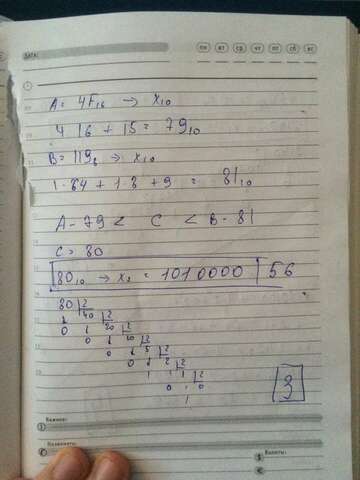 ДАТА:
пн вт ср чт пт сб вс
A = 4F₁₆ → x₁₀
4 16 + 15 = 79₁₀
B = 119₈ → x₁₀
1·64 + 1·8 + 9 = 81₁₀
A - 79 < C < B - 81
C = 80
80₁₀ → x₂ = 1010000 56
80 2
40 2
0 20 2
0 10 2
0 5 2
0 2 2
1 1 2
0 0
1
3
Важное:
Позвонить:
Валюты: